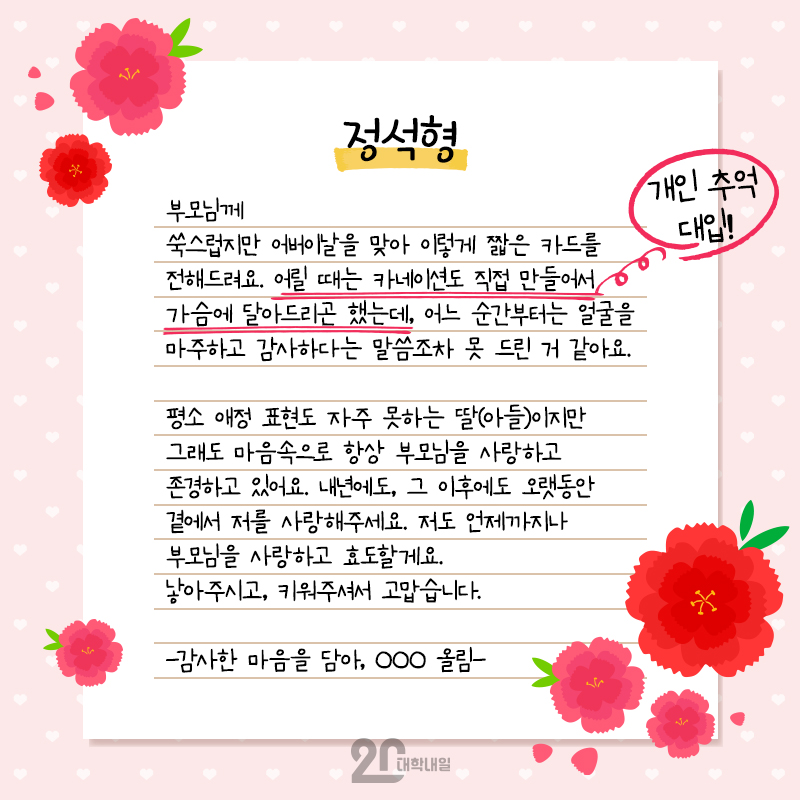 정석형
개인 추억
대입!
부모님께
쑥스럽지만 어버이날을 맞아 이렇게 짧은 카드를
전해드려요. 어릴 때는 카네이션도 직접 만들어서
가슴에 달아드리곤 했는데, 어느 순간부터는 얼굴을
마주하고 감사하다는 말씀조차 못 드린 거 같아요.
평소 애정 표현도 자주 못하는 딸(아들)이지만
그래도 마음속으로 항상 부모님을 사랑하고
존경하고 있어요. 내년에도, 그 이후에도 오랫동안
곁에서 저를 사랑해주세요. 저도 언제까지나
부모님을 사랑하고 효도할게요.
낳아주시고, 키워주셔서 고맙습니다.
-감사한 마음을 담아, OOO 올림-
20 대학내일